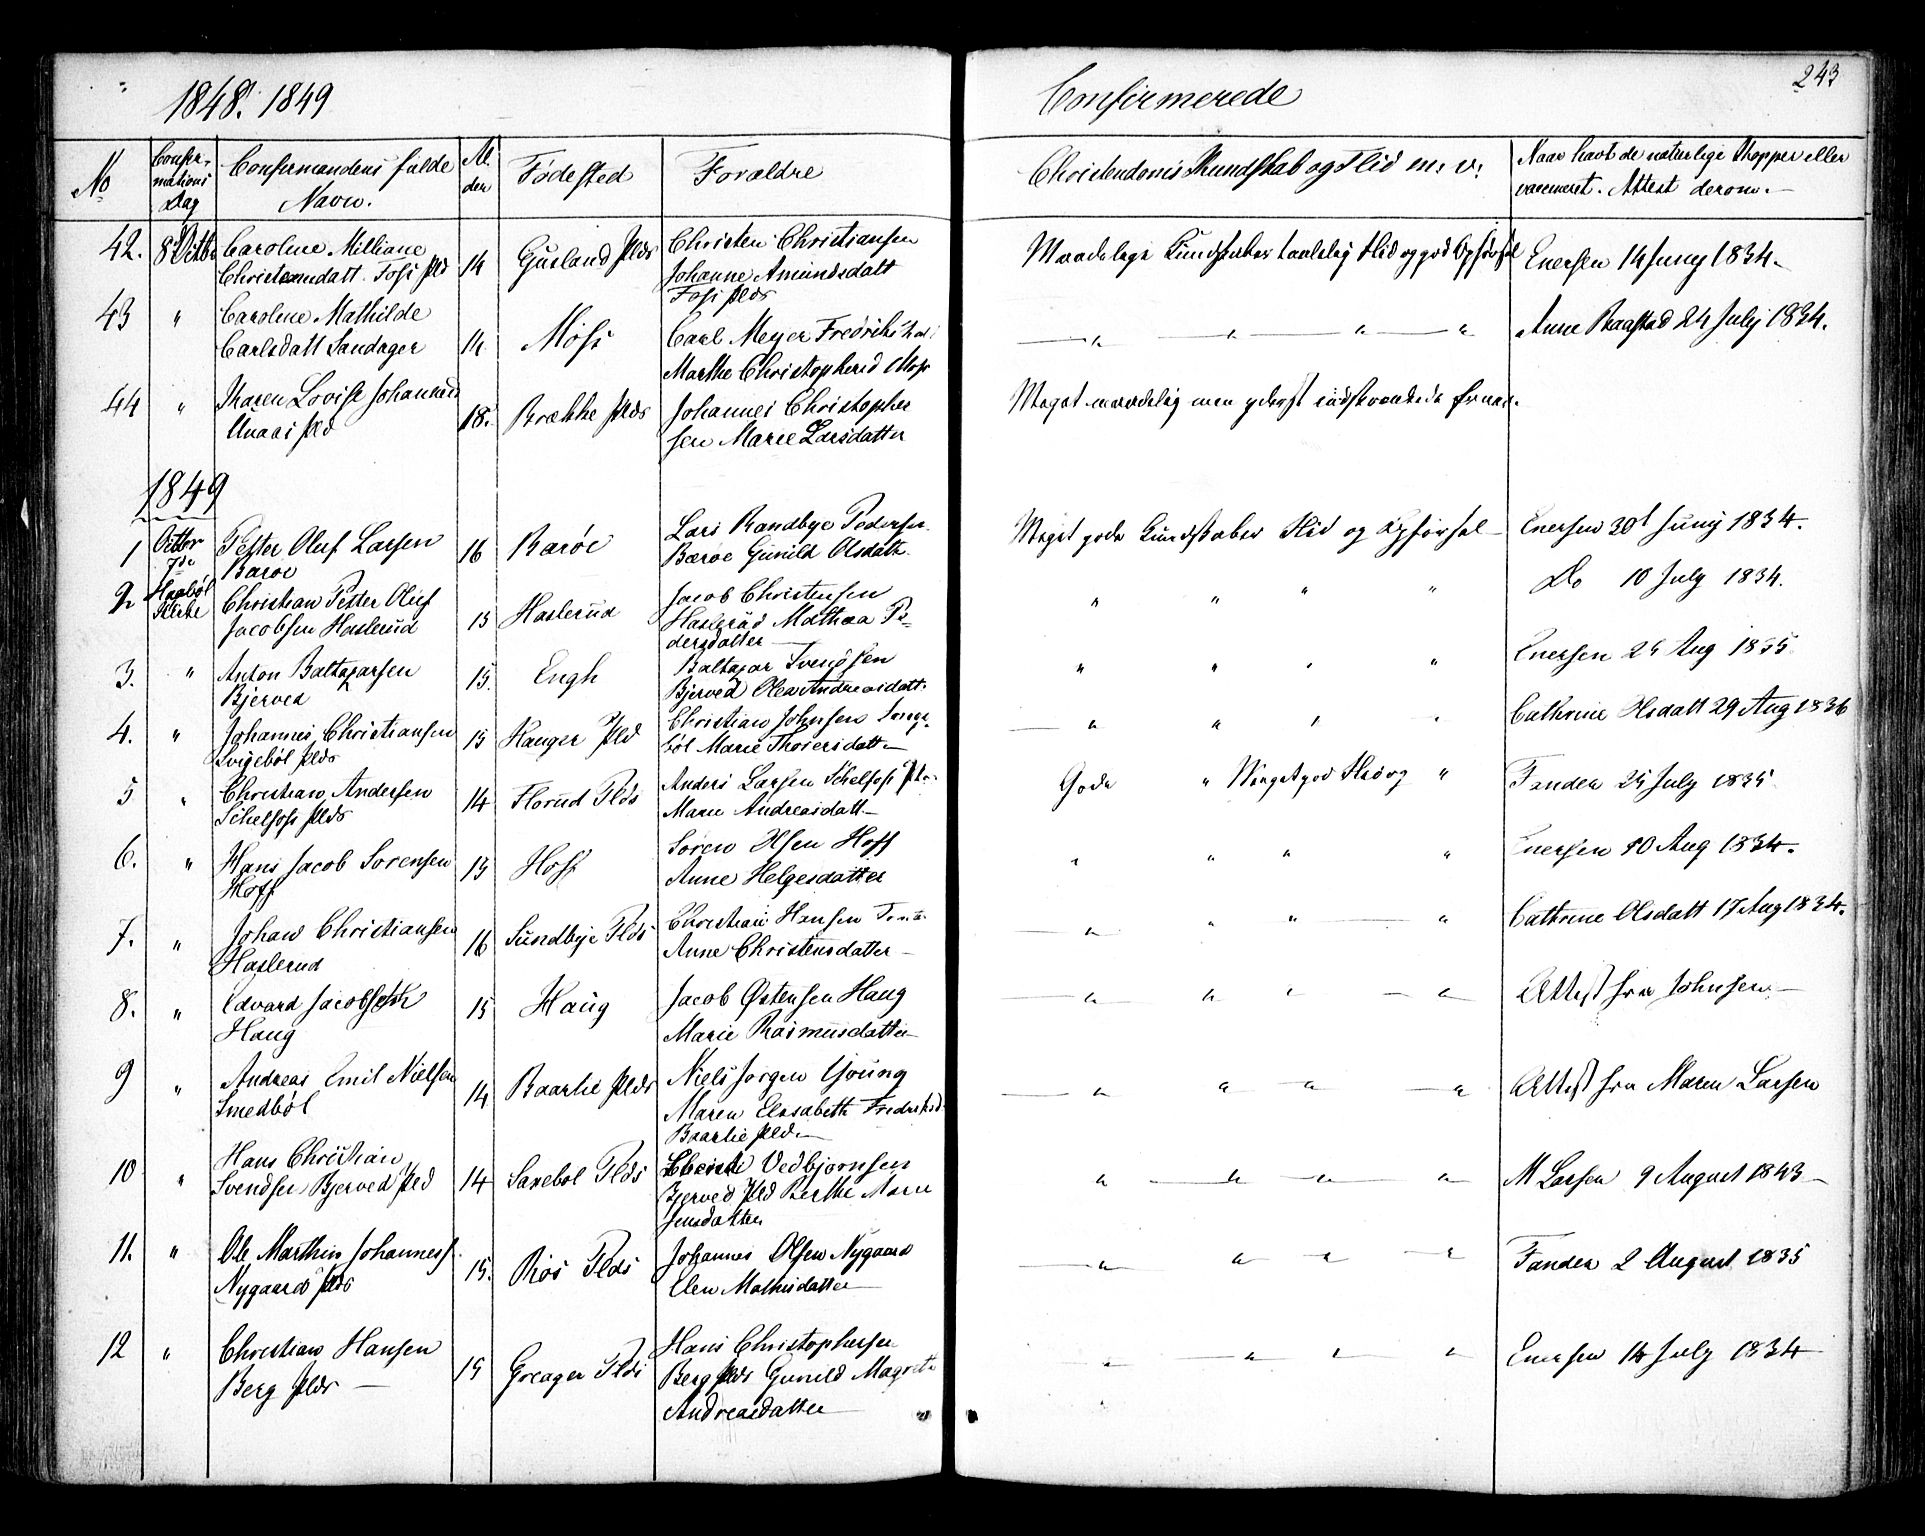 1848. 1849
Confirmerede
243
No
Confir-
mations
Dag
Confirmandens fulde
Navn.
Al
der
Fødested
Forældre
Christendoms Kundskab og Flid m. v.
Naar havt de naturlige Kopper eller
vaccineret. Attest derom.
42. 8 Octbr Caroline Milliane 14 Gusland Plds Christen Christiansen
Christensdatt. Foss pld Johanne Amundsdatt
Foss plds
Maadelige Kundskaber taalelig Flid og god Opførsel Enersen 14 Juny 1834.
43 " Caroline Mathilde
Carlsdatt Sandager 14 Moss Carl Meyer Fredriks
Marthe Christophersd Moss
" " " " Anne Raastad 24 July 1834.
44 " Karen Lovise Johannesd 18. Brække plds Johannes Christopher
pld sen Marie Larsdatter
Meget maadelig men yderst indskrænkede Evner.
1849
1 Octbr
7de
Petter Oluf Larsen
Barøe 16 Barøe Lars Randbye Pedersen
Barøe Gunild Olsdatter
Meget gode Kundskaber Flid og Opførsel Enersen 30t Juny 1834.
2 Haabøl
Kirke
Christian Petter Oluf
Jacobsen Haslerud 15 Haslerud Jacob Christensen
Haslerud Mathea Pe-
dersdatter
" " " " Do 10 July 1834.
3. " Anton Baltazarsen
Bjerved 15. Engh Baltazar Svendsen
Bjerved Olea Andreasdatt.
" " " " Enersen 25 Aug 1835
4. " Johannes Christiansen
plds 15 Hauger Pld Christian Johnsen
bøl Marie Thoresdatt
" " " " Cathrine Olsdatt 29 Aug 1836
5 " Christian Andersen
Schelfoss plds 14 Florud Plds Anders Larsen Schelfoss pld
Maren Andreasdatt
Gode " Meget god Flid og " Fanden 25 July 1835
6. " Hans Jacob Sørensen
Hoff 15 Hoff Søren Olsen Hoff
Anne Helgesdatter
" " " " Enersen 10 Aug 1834.
7. " Johan Christiansen
Haslerud 16 Sundbye Plds Christian Hansen
Anne Christensdatter
" " " " Cathrine Olsdatt 17 Aug 1834.
8. " Edvard Jacobsen
Haug 15 Haug Jacob Østensen Haug
Marie Rasmusdatter
" " " " Attest fra Johnsen
9 " Andreas Emil Nielsen
Smedbøl 14 Baarlie plds Niels Jørgen Young
Maren Elisabeth Fredriksd
Baarlie pld
" " " " Attest fra Maren Larsen
10 " Hans Christian
Svendsen Bjerved pld 14 Saxebøl Plds Vedbjørnsen
Bjerved Pld Berthe Marie
Jensdatter
" " " " M Larsen 9 August 1843
11. " Ole Marthin Johanness.
Nygaard plds 15. Riis Plds Johannes Olsen Nygaard
Elen Mathisdatter
" " " " Fanden 2 August 1835
12 " Christian Hansen
Berg plds 15 Greager Plds Hans Christophersen
Berg plds Gunild Magrete
Andreasdatter
" " " " Enersen 14 July 1834